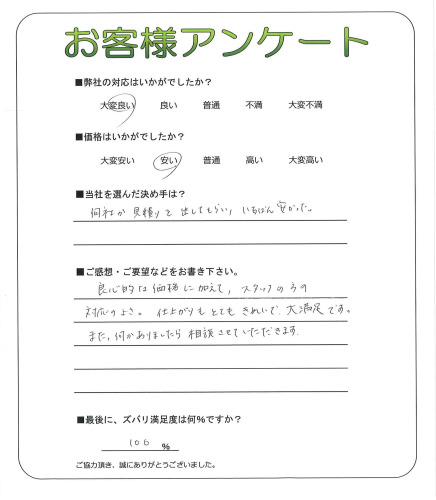 お客様アンケート
■弊社の対応はいかがでしたか？
大変良い 良い 普通 不満 大変不満
■価格はいかがでしたか？
大変安い 安い 普通 高い 大変高い
■当社を選んだ決め手は？
何社か見積りを出してもらい、いちばん安かった。
■ご感想・ご要望などをお書き下さい。
良心的な価格に加えて、スタッフの方の
対応のよさ。仕上がりもとてもきれいで、大満足です。
また、何かありましたら相談させていただきます。
■最後に、ズバリ満足度は何％ですか？
100 ％
ご協力頂き、誠にありがとうございました。